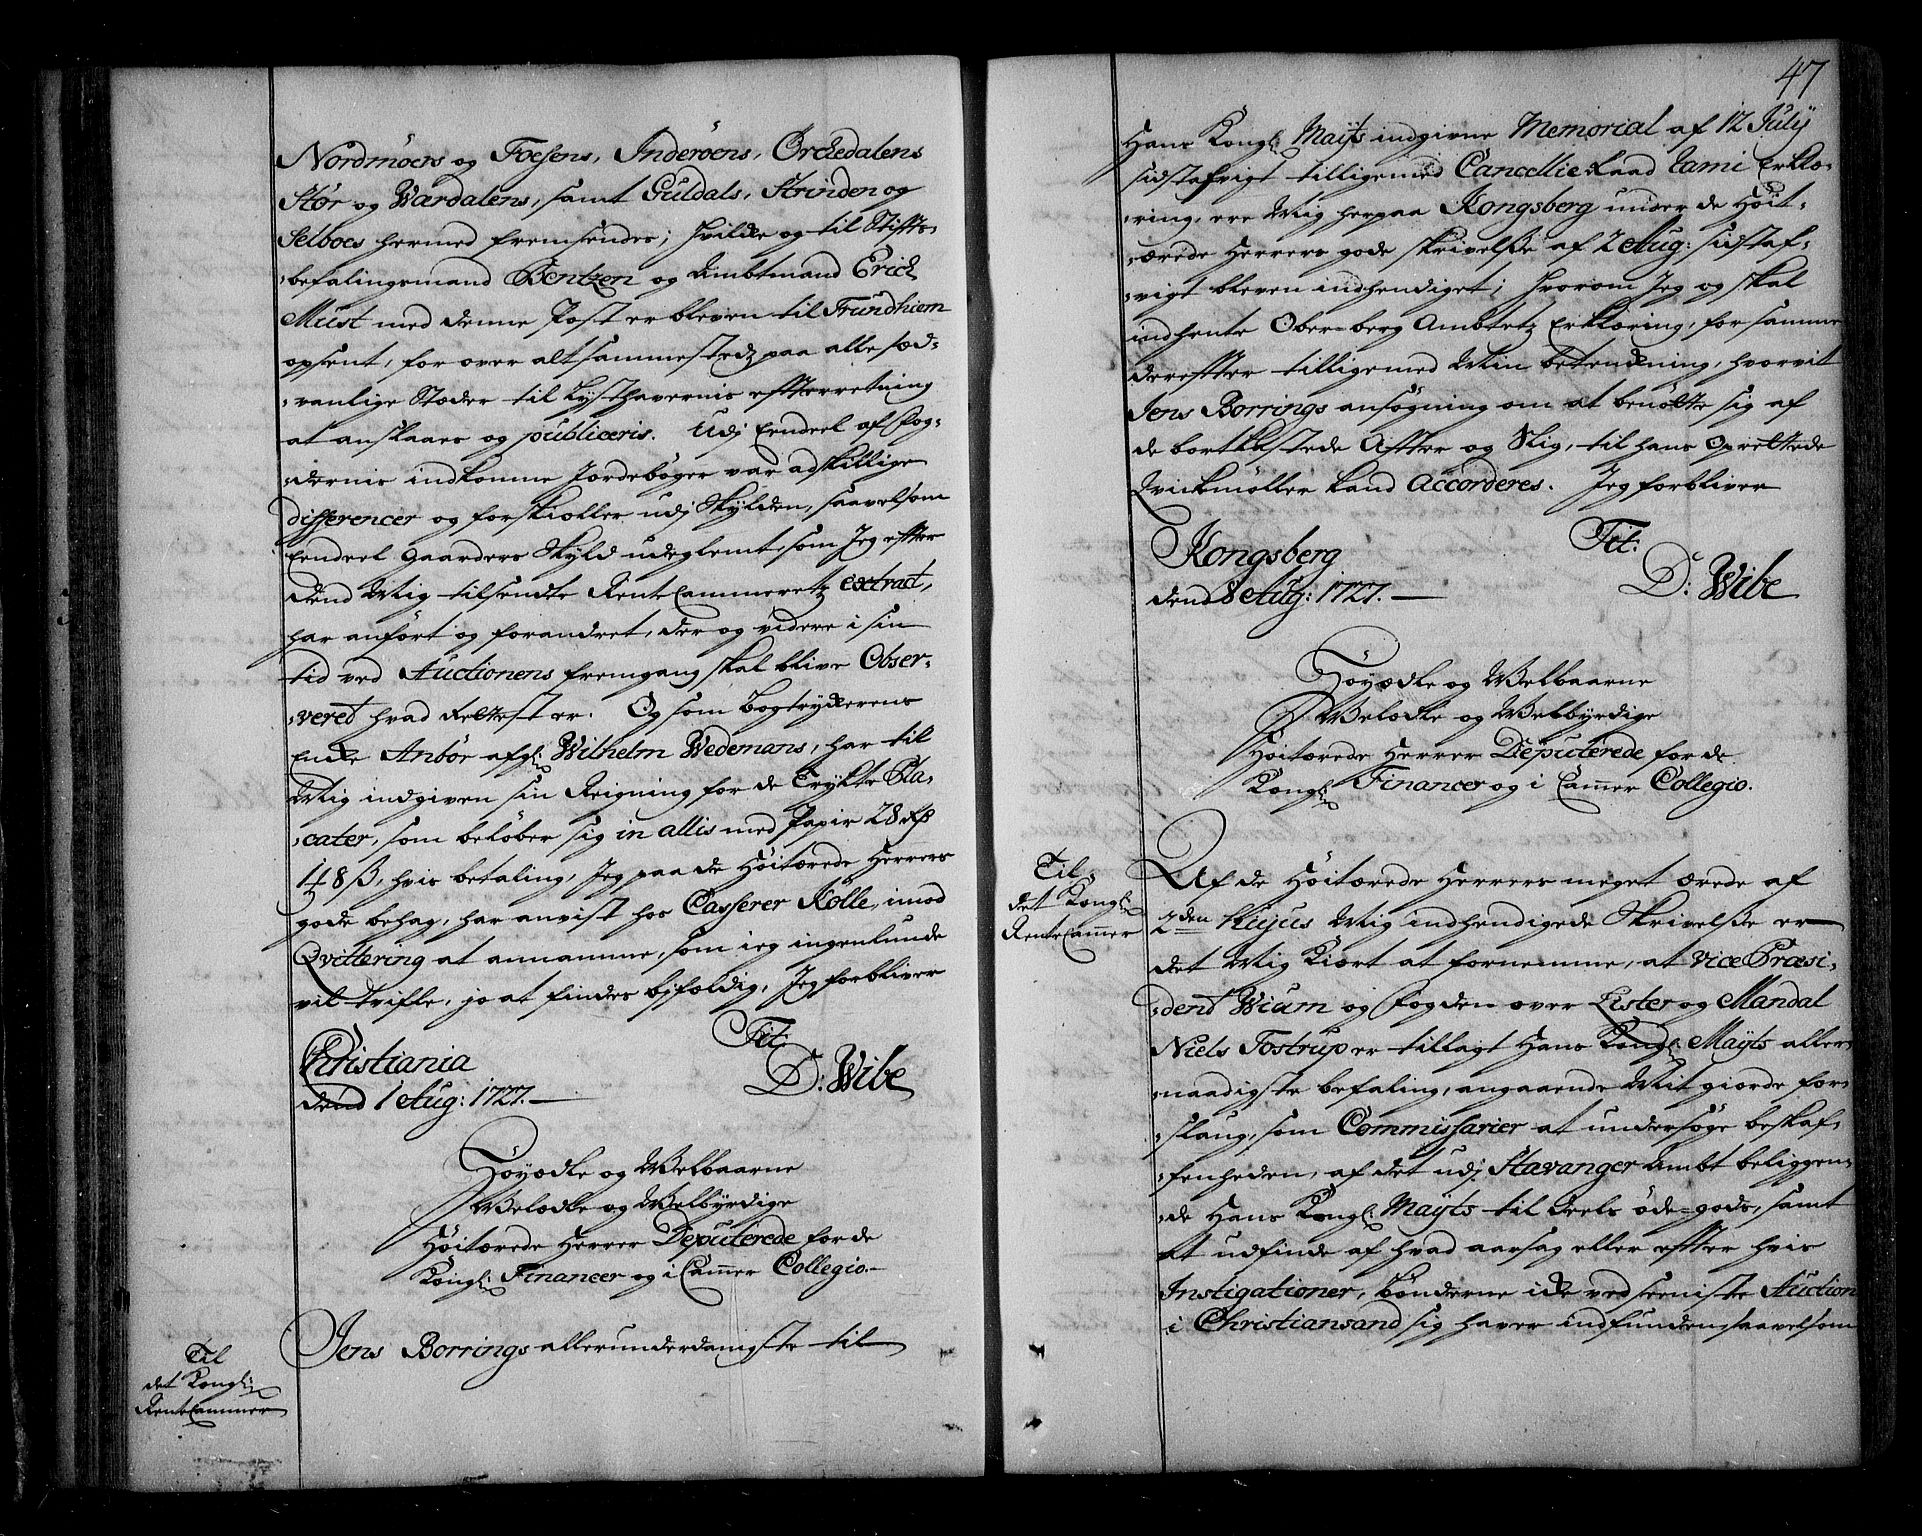 Nordmöers og Foesens, Inderöens, Orckedalens
Stör og Wærdalens, samt Guldals, Strinden og
Selboes hermed fremsendes; hvilcke og til Stiffts-
befalingsmand Bentzen og Ambtmand Erich
Must med denne Post er bleven til Trundhiem
opsent, for over alt sammestedz paa alle sæd-
vanlige Stæder til Lysthavernis effterretning
at anslaaes og publiceris. Udj Eendeel af Fog-
dernis indkomne Jordebøger var adskillige
differencer og forskiæller udj Skylden, saavelsom
Eendeel Gaarders Skyld udeglemt, som Jeg effter
dend Mig tilsendte RenteCammeretz extract,
har anfört og forandret, der og videre i sin
tid ved Auctionens fremgang skal blive Obser-
veret hvad Rettest er. Og som bogtryckerens
Encke Anbör afgl: Wilhelm Wedemans, har til
Mig indgiven sin Reigning for de Trykte Pla-
cater, som beløber sig in allis med Papir 28 Rdr
1 4 8 ß, hvis betaling, Jeg paa de Höitærede Herrers
gode behag, har anvist hos Casserer Kölle, imod
Qvittering at annamme, som ieg ingenlunde
vil tvifle, jo at findes bjfoldig, Jeg forbliver
Christiania
dend 1 Aug: 1727.
Tit:
D: Wibe
Höyædle og Welbaarne
Welædle og Welbyrdige
Höitærede Herrer Deputerede for de
Kongl: Financer og i Cammer Collegio.
Til
det Kongl:
RenteCammer
Jens Borrings allerunderdanigste til
47
Hans Kongl: Mayts indgivne Memorial af 12 July
sidstafvigt tilligemed CancellieRaad Tami Erklæ-
ring, ere Mig herpaa Kongsberg under de Höit-
ærede Herrers gode skrivelße af 2 Aug: sidstaf-
vigt bleven indhendiget; hvorom Jeg og skal
indhente Ober-berg Ambtetz Erklæring, for samme
dereffter tilligemed Min betenckning, hvorvit
Jens Borrings ansøgning om at benötte sig af
de bortkastede Affter og Slig, til hans Oprettede
Qvickmöller kand Accorderes. Jeg forbliver
Kongsberg
dend 8 Aug: 1727.
Tit:
D: Wibe
Höyædle og Welbaarne
Welædle og Welbyrdige
Höitærede Herrer Deputerede for de
Kongl: Financer og i Cammer Collegio.
Til
det Kongl:
RenteCammer
Af de Höitærede Herrers meget ærede af
2den Hujus Mig indhendigede Skrivelße er
det Mig Kiært at fornemme, at Vice Præsi-
dent Wium og Fogden over Lister og Mandal
Niels Tostrup er tillagt Hans Kongl: Mayts aller-
naadigste befaling, angaaende Mit giorde for-
slaug, som Commissarier at undersøge beskaf-
fenheden, af det udj Stavanger Ambt beliggen-
de Hans Kongl: Mayts til Deels öde-gods, samt
at udfinde af hvad aarsag eller effter hvis
Instigationer, bønderne icke ved seeniste Auction
i Christiansand sig haver indfunden saavelsom